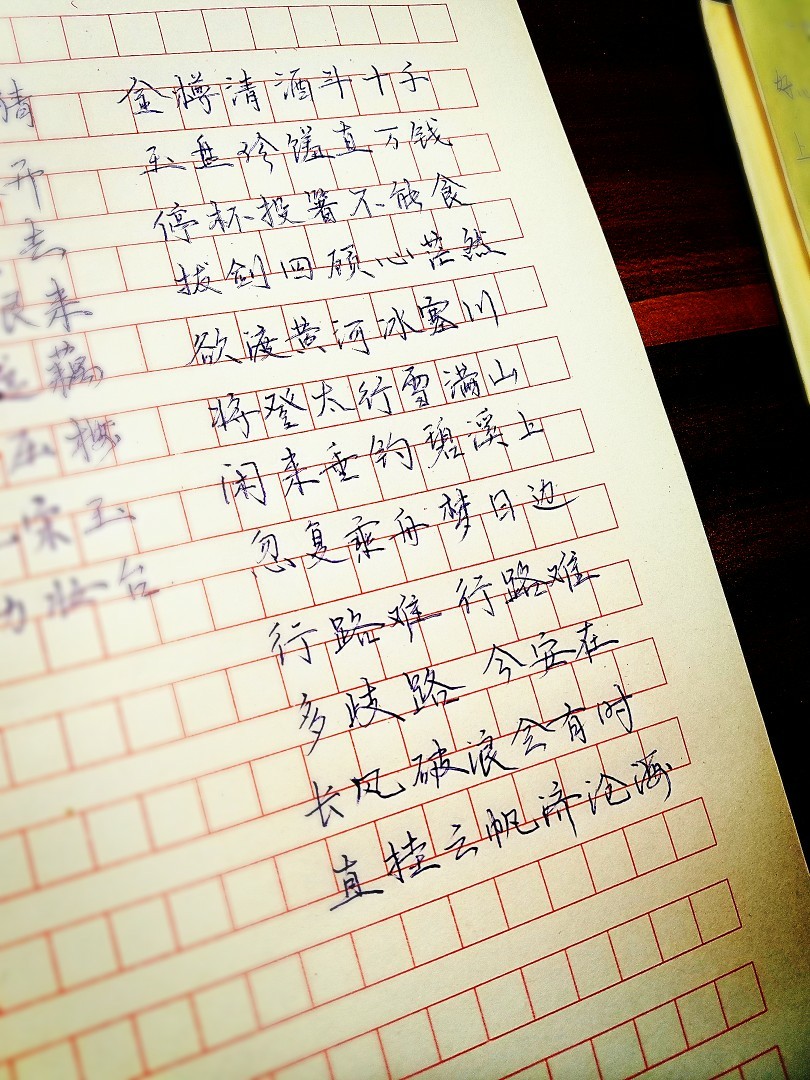 开
去
来
藕
宋玉
妆台
金樽清酒斗十千
玉盘珍馐直万钱
停杯投箸不能食
拔剑四顾心茫然
欲渡黄河冰塞川
将登太行雪满山
闲来垂钓碧溪上
忽复乘舟梦日边
行路难 行路难
多歧路 今安在
长风破浪会有时
直挂云帆济沧海